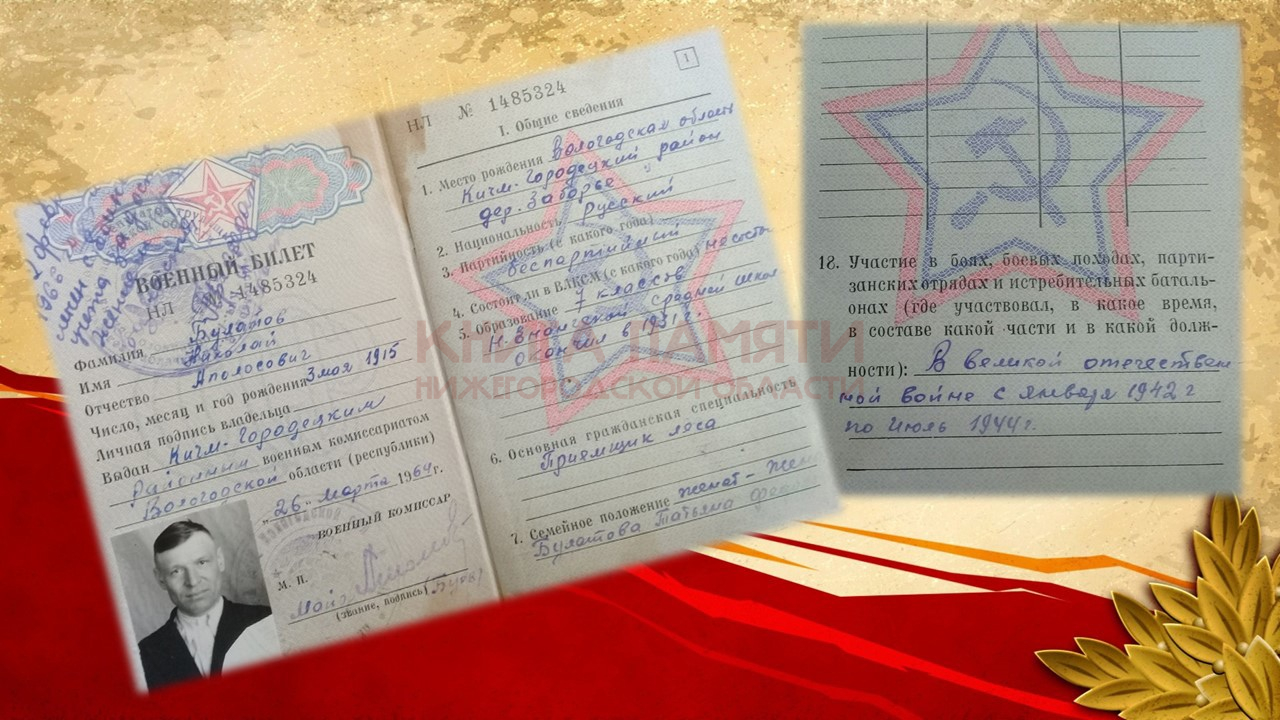 ВОЕННЫЙ БИЛЕТ
НЛ № 1485324
Фамилия Булатов
Имя Николай
Отчество Аполосович
Число, месяц и год рождения 3 мая 1915
Личная подпись владельца
Выдан Кичм. Городецким
Районным военным комиссариатом
Вологодской области (республики)
„26" марта 1964г.
ВОЕННЫЙ КОМИССАР
М. П.
(звание, подпись)
1
НЛ № 1485324
I. Общие сведения
1. Место рождения Вологодская область
Кичм. Городецкий район
дер. Заборье
2. Национальность русский
3. Партийность (с какого года)
беспартийный
4. Состоит ли в ВЛКСМ (с какого года)
5. Образование 7 классов
средней школ
окончил в 1931 г.
6. Основная гражданская специальность
Приемщик леса
7. Семейное положение женат - жена
Булатова Татьяна
18. Участие в боях, боевых походах, парти-
занских отрядах и истребительных баталь-
онах (где участвовал, в какое время,
в составе какой части и в какой долж-
ности): В великой отечествен
ной войне с января 1942 г
по Июль 1944 г.
КНИГА ПАМЯТИ
НИЖЕГОРОДСКОЙ ОБЛАСТИ